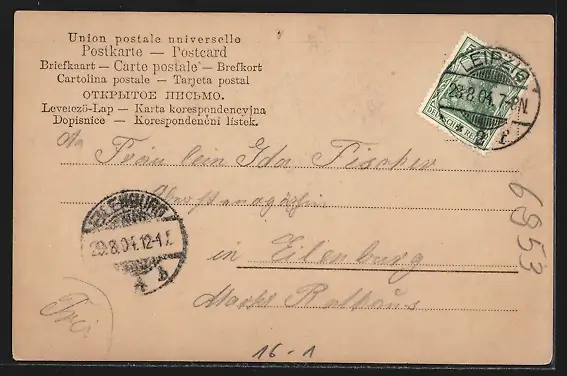 Union postale universelle
Postkarte — Postcard
Briefkaart — Carte postale — Brefkort
Cartolina postale — Tarjeta postal
ОТКРЫТОЕ ПИСЬМО.
Levelező-Lap — Karta korespondencyjna
Dopisnice — Korespondenční lístek.
LEIPZIG
29.8.04. 7-8N.
An
Fräulein Ida Fischer
in Eilenburg
Markt Rathaus
EILENBURG
29.8.04.12-1
6953
Frei
16-1